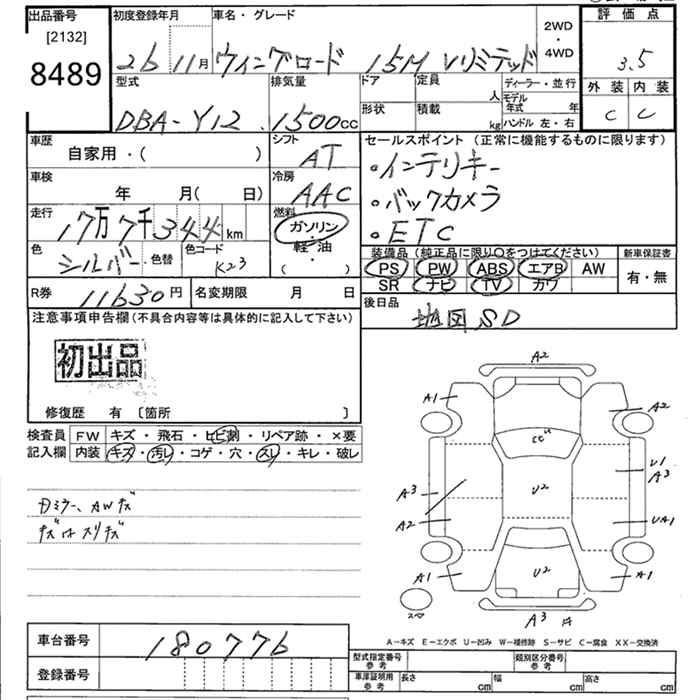 出品番号 初度登録年月 車名・グレード 2WD・4WD 評価点
[2132]
8489 26 11月 ウィングロード 15M Vリミテッド 3.5
型式 排気量 ドア 定員 人 ディーラー・並行 外装 内装
形状 積載 kg モデル年式 年 C C
DBA-Y12 1500cc ハンドル 左・右
車歴 シフト セールスポイント(正常に機能するものに限ります)
自家用・( ) AT ・インテリキー
車検 冷房 ・バックカメラ
年 月( 日) AAC ・ETC
走行 17万7千344km 燃料 ガソリン・軽油・( )
色 シルバー 色替 色コード K23
装備品(純正品に限り○をつけてください) 新車保証書
PS PW ABS エアB AW 有・無
SR ナビ TV カワ
R券 11630円 名変期限 月 日 後日品
地図SD
注意事項申告欄(不具合内容等は具体的に記入して下さい)
初出品
修復歴 有 〔箇所 〕
検査員 FW キズ・飛石・ヒビ割・リペア跡・×要
記入欄 内装 キズ・汚レ・コゲ・穴・スレ・キレ・破レ
A2
A1 A2
U2
A3 U1 A3
A2 UA1
U2
A1 A1
A3
A-キズ E-エクボ U-凹み W-補修跡 S-サビ C-腐食 XX-交換済
車台番号 180776
登録番号
型式指定番号 参考 類別区分番号 参考
車庫証明用 参考 長さ cm 幅 cm 高さ cm